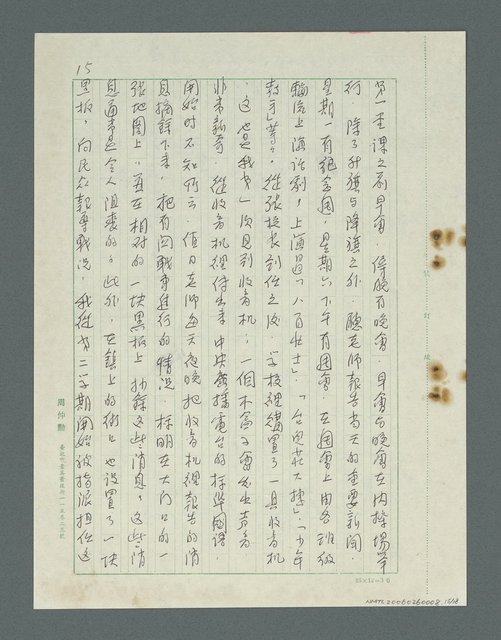 15
第一堂課之前早會，傍晚有晚會，早會與晚會在內操場舉
行，除了升旗與降旗之外，聽老師報告當天的重要新聞。
星期一有紀念週，星期六下午有週會，在週會上由各班級
輪流上演話劇，上演過「八百壯士」，「台兒莊大捷」，「少年
教子」等等，從張校長到任之後，學校裡購置了一具收音機
，這也是我第一次見到收音機，一個木盒子會發出聲音
非常新奇，從收音機裡傳出來中央廣播電台的標準國語
開始時不知所云，值日老師每天夜晚把收音機裡報告的消
息摘錄下來，把有関戰事進行的情況，標明在大門口的一
張地圖上，並在相対的一塊黑板上抄錄這些消息，這些消
息通常是令人沮喪的，此外，在鎮上的街口也設置了一塊
黑板，向民众報導戰況，我從第二学期開始被指派担任這
周仲勳
裝 訂 線
25×12=30
NMTL20060260008 15/18